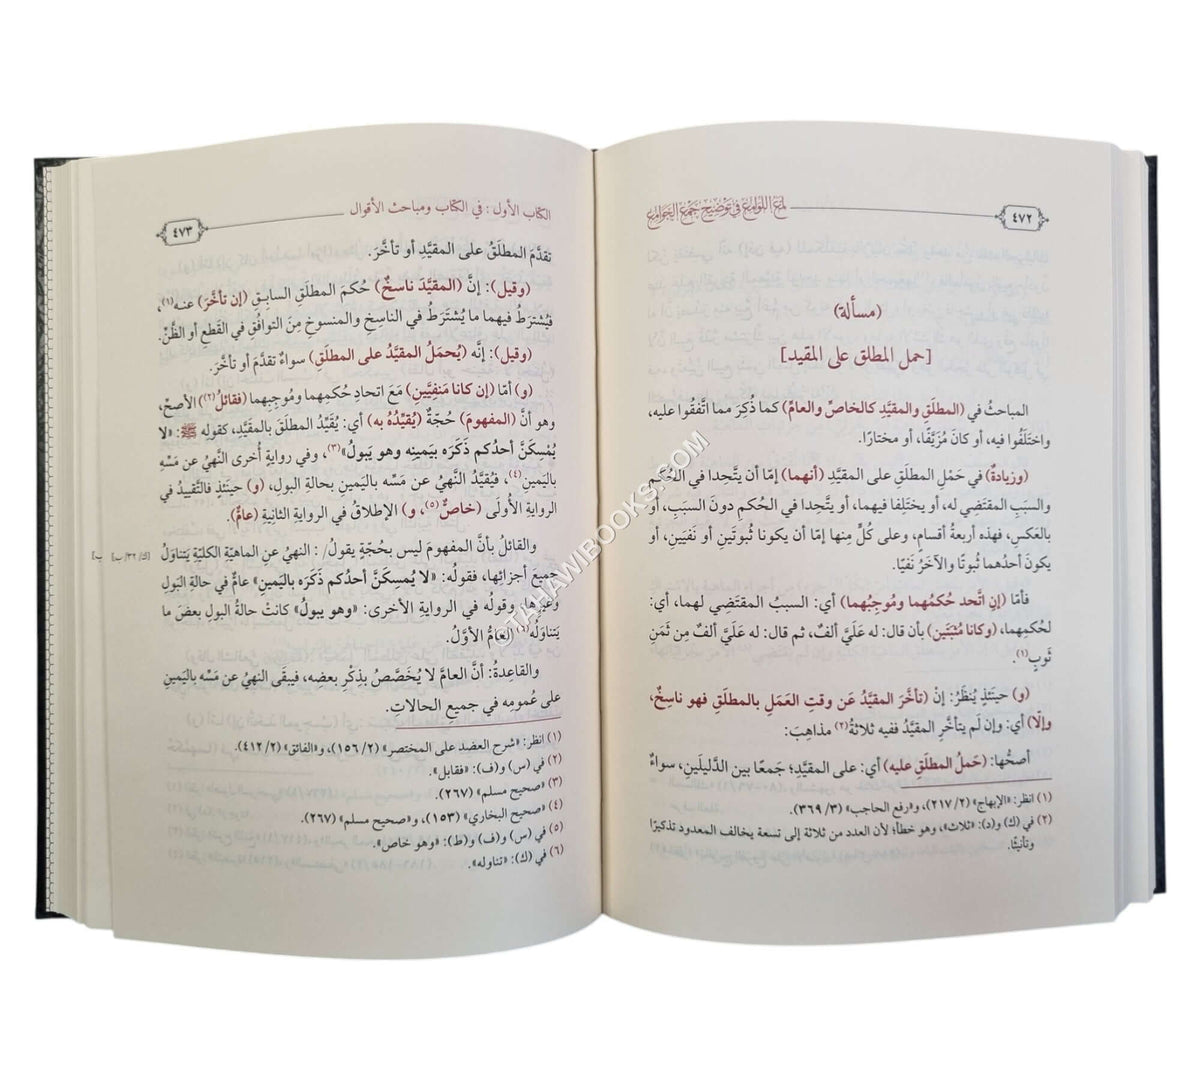 لمع اللوامع في توضيح جمع الجوامع
٤٧٢
(مسألة)
[حمل المطلق على المقيد]
المباحثُ في (المطلَقِ والمقيَّدِ كالخاصِّ والعامِّ) كما ذُكرَ مما اتَّفقُوا عليه،
واختَلَفُوا فيه، أو كانَ مُزَيَّفًا، أو مختارًا.
(وزيادةٌ) في حَمْلِ المطلَقِ على المقيَّدِ (أنهما) إمّا أن يتَّحِدا في الحُكمِ
والسببِ المقتَضي له، أو يختَلِفا فيهما، أو يتَّحِدا في الحُكمِ دونَ السببِ، أو
بالعكسِ، فهذه أربعةُ أقسامٍ، وعلى كُلٍّ مِنها إمّا أن يكونا ثُبوتَينِ أو نَفيَينِ، أو
يكونَ أحدُهما ثُبوتًا والآخَرُ نَفْيًا.
فأمّا (إن اتَّحد حُكمُهما ومُوجِبُهما) أي: السببُ المقتَضي لهما، أي:
لحُكمِهما، (وكانا مُثبَتَينِ) بأن قال: له عَلَيَّ ألفٌ، ثم قال: له عَلَيَّ ألفٌ مِن ثَمَنِ
ثَوبٍ(١).
(و) حينَئذٍ يُنظَرُ: إنْ (تأخَّرَ المقيَّدُ عَن وقتِ العَمَلِ بالمطلَقِ فهو ناسِخٌ،
وإلّا) أي: وإن لَم يتأخَّرِ المقيَّدُ ففيه ثلاثةُ(٢) مذاهِبَ:
أصحُّها: (حَملُ المطلَقِ عليه) أي: على المقيَّدِ؛ جَمعًا بين الدَّليلَينِ، سواءٌ
(١) انظر: «الإبهاج» (٢/ ٢١٧)، و«رفع الحاجب» (٣/ ٣٦٩).
(٢) في (ك) و(د): «ثلاث»، وهو خطأ؛ لأن العدد من ثلاثة إلى تسعة يخالف المعدود تذكيرًا
وتأنيثًا.
الكتاب الأول: في الكتاب ومباحث الأقوال
٤٧٣
تقدَّمَ المطلَقُ على المقيَّدِ أو تأخَّرَ.
(وقيل): إنَّ (المقيَّدَ ناسِخٌ) حُكمَ المطلَقِ السابِقِ (إن تأخَّرَ) عنه(١)،
فيُشتَرَطُ فيهما ما يُشتَرَطُ في الناسِخِ والمنسوخِ مِنَ التوافُقِ في القَطعِ أو الظَّنِّ.
(وقيل): إنَّه (يُحمَلُ المقيَّدُ على المطلَقِ) سواءٌ تقدَّمَ أو تأخَّرَ.
(و) أمّا (إن كانا مَنفِيَّينِ) مَعَ اتحادِ حُكمِهما ومُوجِبِهما (فقائلُ(٢)) الأصحِّ،
وهو أنَّ (المفهومَ) حُجّةٌ (يُقيِّدُهُ به) أي: يُقيِّد المطلَقَ بالمقيَّدِ، كقولِه ﷺ: «لا
يُمْسِكَنَّ أحدُكم ذَكَرَه بيَمينِه وهو يَبولُ»(٣)، وفي روايةٍ أُخرى النَّهيُ عن مَسِّه
باليَمينِ(٤)، فيُقيَّدُ النَّهيُ عن مَسِّه باليَمينِ بحالةِ البولِ، (و) حينَئذٍ فالتَّقييدُ في
الروايةِ الأُولَى (خاصٌّ(٥)، و) الإطلاقُ في الروايةِ الثانِيةِ (عامٌّ).
والقائلُ بأنَّ المفهومَ ليس بحُجّةٍ يقولُ/: النهيُ عن الماهيّةِ الكليّةِ يَتناوَلُ
[ك/ ٣٢/ ب]
جميعَ أجزائِها، فقولُه: «لا يُمسكَنَّ أحدُكم ذَكَرَه باليَمينِ» عامٌّ في حالةِ البَولِ
وغيرِها، وقولُه في الروايةِ الأخرى: «وهو يبولُ» كانتْ حالةُ البولِ بعضَ ما
يَتناوَلُه(٦) العامُّ الأوَّلُ.
والقاعِدةُ: أنَّ العامَّ لا يُخَصَّصُ بذِكْرِ بعضِه، فيبقَى النهيُ عن مَسِّه باليَمينِ
على عُمومِه في جميعِ الحالاتِ.
(١) انظر: «شرح العضد على المختصر» (٢/ ١٥٦)، و«الفائق» (٢/ ٤١٢).
(٢) في (س) و(ف): «فقابل».
(٣) «صحيح مسلم» (٢٦٧).
(٤) «صحيح البخاري» (١٥٣)، و«صحيح مسلم» (٢٦٧).
(٥) في (س) و(ف) و(ط): «وهو خاص».
(٦) في (ك): «تناوله».
@TAHAWIBOOKS.COM